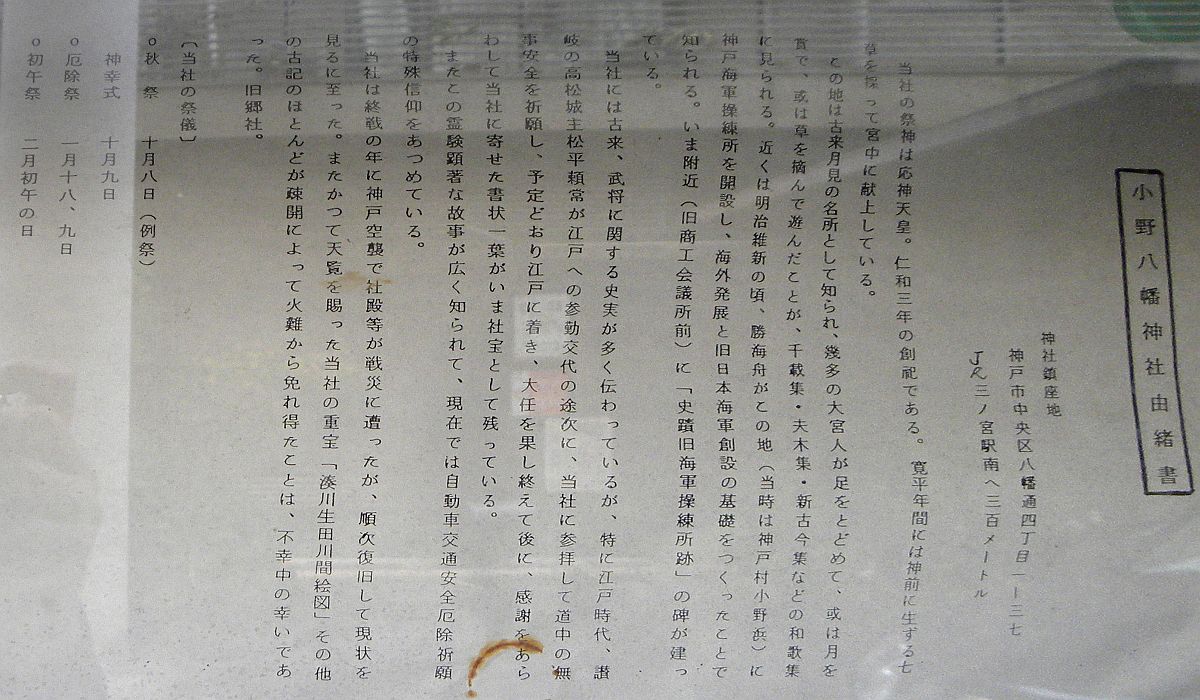 小野八幡神社由緒書
神社鎮座地
神戸市中央区八幡通四丁目一ー三七
JR三ノ宮駅南へ三百メートル
当社の祭神は応神天皇。仁和三年の創祀である。寛平年間には神前に生ずる七
草を採って宮中に献上している。
この地は古来月見の名所として知られ、幾多の大宮人が足をとどめて、或は月を
賞で、或は草を摘んで遊んだことが、千載集・夫木集・新古今集などの和歌集
に見られる。近くは明治維新の頃、勝海舟がこの地(当時は神戸村小野浜)に
神戸海軍操練所を開設し、海外発展と旧日本海軍創設の基礎をつくったことで
知られる。いま附近(旧商工会議所前)に「史蹟旧海軍操練所跡」の碑が建っ
ている。
当社には古来、武将に関する史実が多く伝わっているが、特に江戸時代、讃
岐の高松城主松平頼常が江戸への参勤交代の途次に、当社に参拝して道中の無
事安全を祈願し、予定どおり江戸に着き、大任を果し終えて後に、感謝をあら
わして当社に寄せた書状一葉がいま社宝として残っている。
またこの霊験顕著な故事が広く知られて、現在では自動車交通安全厄除祈願
の特殊信仰をあつめている。
当社は終戦の年に神戸空襲で社殿等が戦災に遭ったが、順次復旧して現状を
見るに至った。またかつて天覧を賜った当社の重宝「湊川生田川間絵図」その他
の古記のほとんどが疎開によって火難から免れ得たことは、不幸中の幸いであ
った。旧郷社。
〔当社の祭儀〕
o秋祭 十月八日(例祭)
神幸式 十月九日
o厄除祭 一月十八、九日
o初午祭 二月初午の日